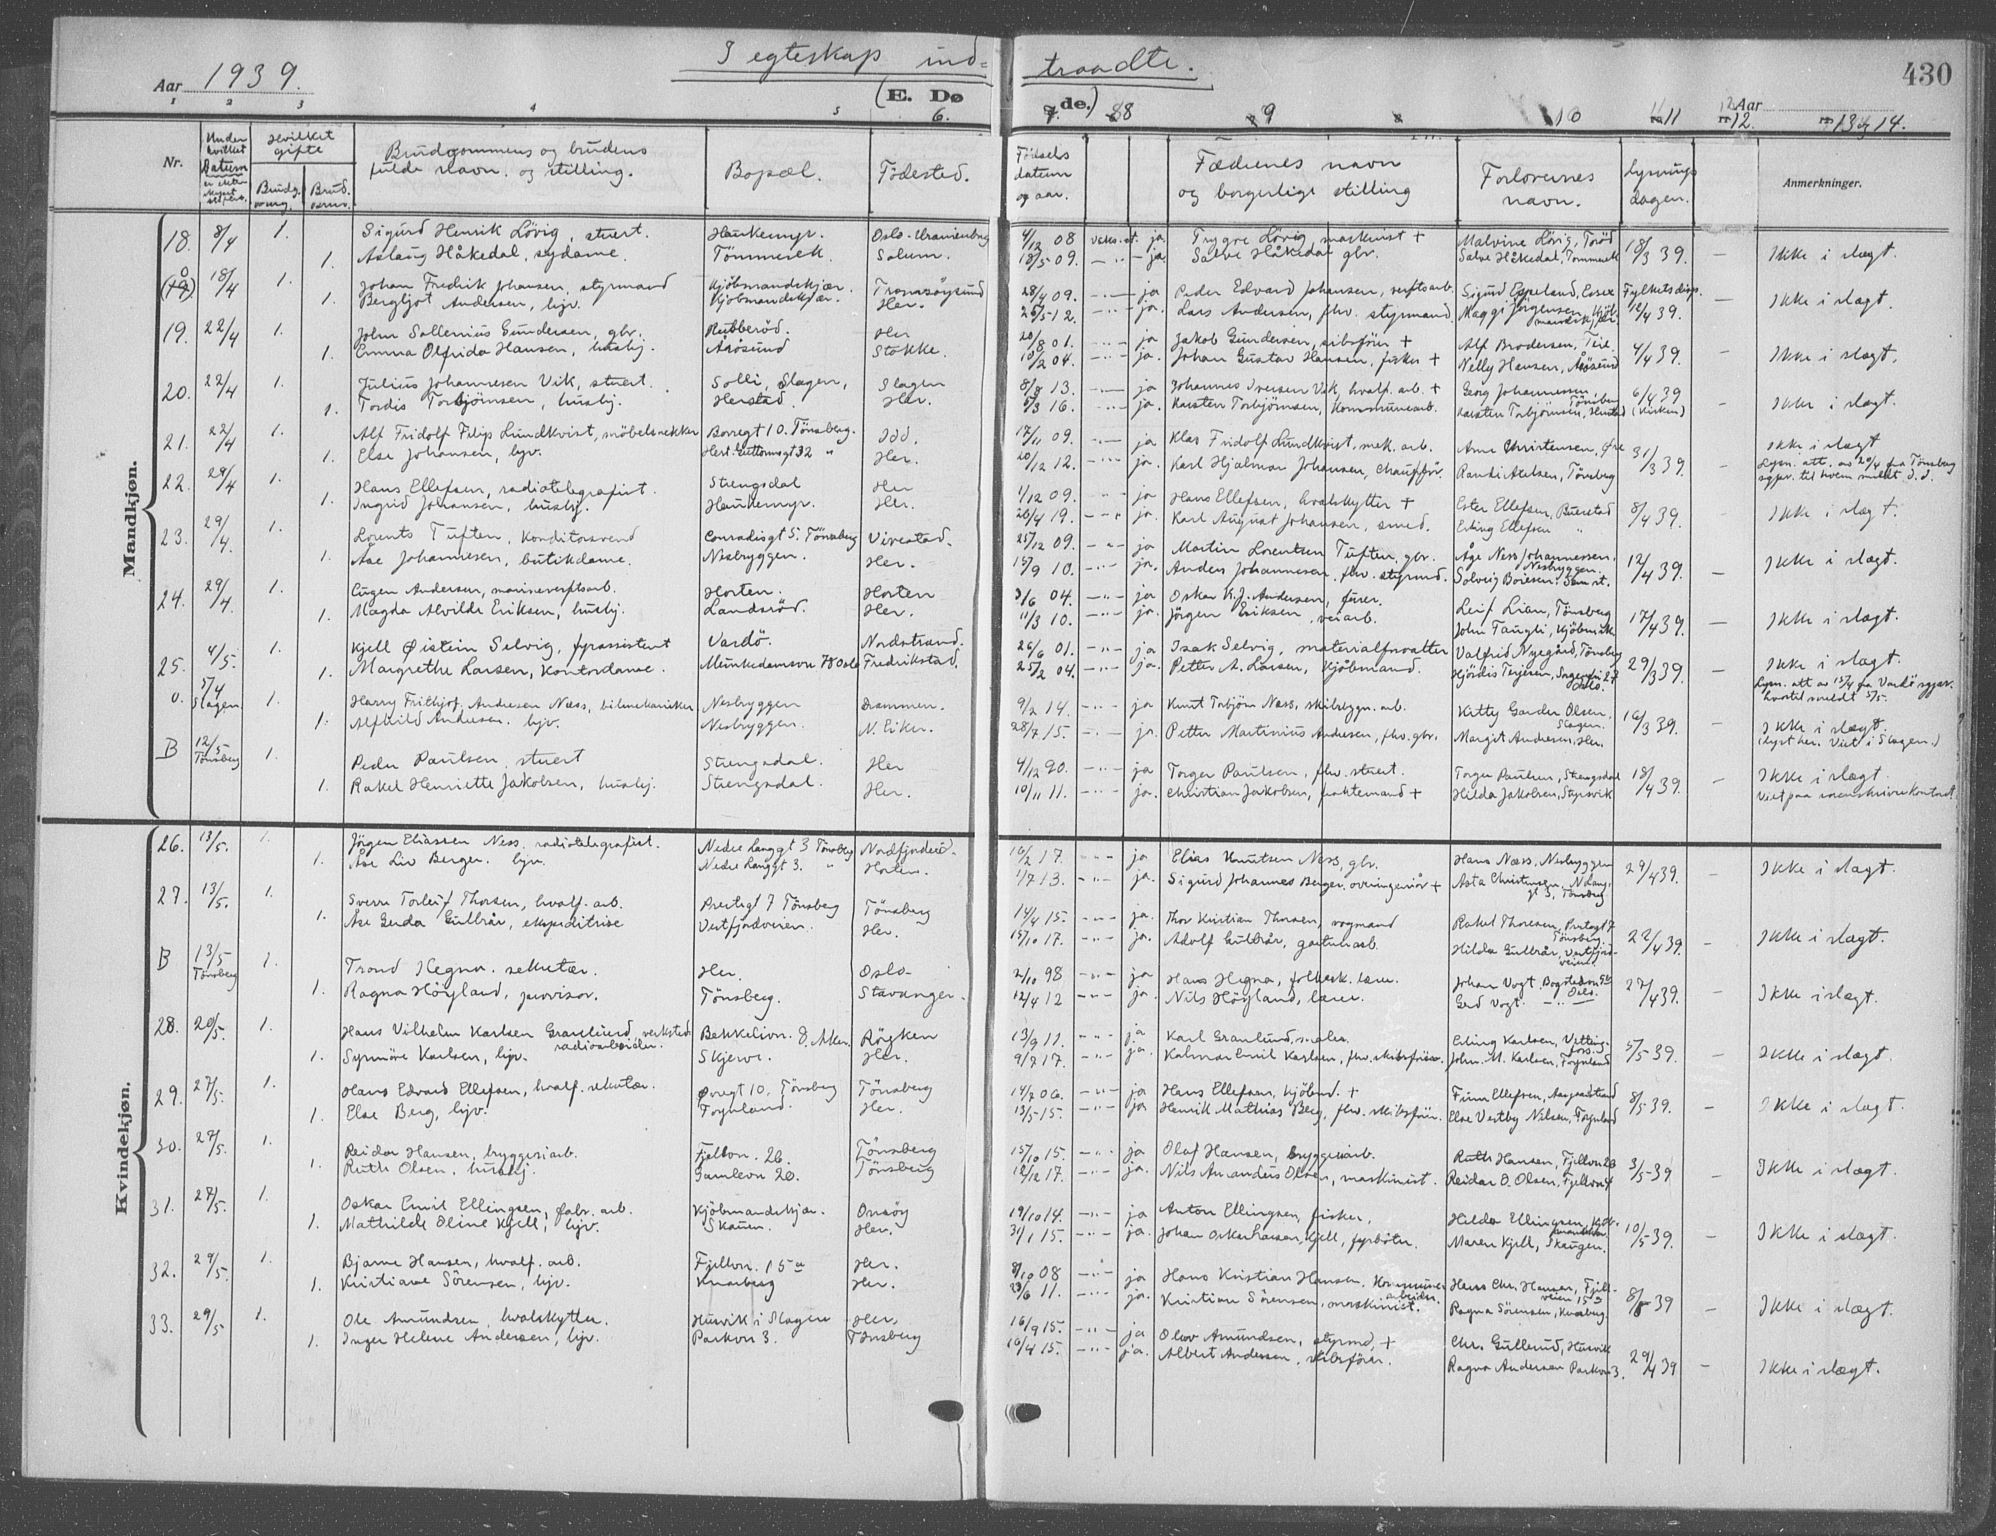 430
Aar 1939.
I egteskap ind-
traadte.
(E. Dø
de.)
Aar
1 2 3 4 5 6. 7. 8 9 10 11 12. 13 og 14.
Nr.
Under hvilket Datum
Hvilket gifte
Brudg.
Brud.
Brudgommens og brudens
fulde navn og stilling.
Bopæl.
Fødested.
Fødsels
datum
og aar.
Fædrenes navn
og borgerlige stilling
Forlovernes
navn.
Lysnings
dagen.
Anmerkninger.
Mandkjøn.
18. 8/4 1. Sigurd Henrik Lövig, stuert. Haukemyr. Oslo-Uranienborg 4/12 08 ja Trygve Lövig maskinist + Malvine Lövig, Torød 18/3 39. – Ikke i slægt.
1. Aslaug Håkedal, sydame. Tömmerek Solum. 18/5 09. ja. Salve Håkedal gbr. Salve Håkedal, Tömmerek
18/4 1. Johan Fredrik Johansen, styrmand Kjöbmandskjær. Tromsöysund 28/4 09. ja Peder Edvard Johansen, verftsarb. Sigurd Espeland, Essex Fylkets disp. 12/4 39. – Ikke i slægt.
1. Bergljot Andersen, hjv. Kjöbmandskjær. Her. 25/5 12. ja. Lars Andersen, fhv. styrmand. Maggi Jörgensen, Kjöbmandskjær
19. 22/4 1. John Sollenius Gundersen, gbr. Rubberöd. Her 20/8 01. ja Jakob Gundersen, skibsförer + Alf Brodersen, Teie. 4/4 39. – Ikke i slægt.
1. Emma Olfrida Hansen, huslg. Årösund Stokke. 10/2 04. ja. Johan Gustav Hansen, fisker + Nelly Hansen, Årösund
20. 22/4 1. Julius Johannesen Vik, stuert. Solli, Slagen, Slagen 8/8 13. ja Johannes Iversen Vik, hvalf. arb. + Georg Johannessen Tönsberg 6/4 39 – Ikke i slægt.
1. Tordis Torbjörnsen, huslg. Herstad. Her. 5/3 16. ja. Karsten Torbjörnsen, Kommunearb. Karsten Torbjörnsen, Herstad (Kirken)
21. 22/4 1. Alf Fridolf Filip Lundkvist, möbelsnekker Borregt 10. Tönsberg. Idd. 17/11 09. ja Klas Fridolf Lundkvist, mek. arb. Arne Christensen, Øre 31/3 39. – Ikke i slægt
1. Else Johansen, hjv. Hert. Guttormsgt 32 " Her. 20/12 12. ja. Karl Hjalmar Johansen, chaufför. Randi Axelsen, Tönsberg Lysn. att. av 20/4 fra Tönsberg
sgpr. til hvem meldt S. D.
22. 29/4 1. Hans Ellefsen, radiotelegrafist. Stengsdal Her 1/12 09. ja Hans Ellefsen, hvalskytter + Ester Ellefsen, Buerstad 8/4 39. – Ikke i slægt.
1. Ingrid Johansen, huslg. Haukemyr. Her. 26/4 19. ja. Karl August Johansen, smed. Erling Ellefsen "
23. 29/4. 1. Lorents Tuften, Konditorsvend Conradisgt 5. Tönsberg Vivestad. 25/12 09. ja Martin Lorentsen Tuften, gbr. Åge Ness Johannessen, Nesbryggen. 12/4 39. – Ikke i slægt.
1. Åse Johannesen, butikdame. Nesbryggen. Her. 15/9 10. ja. Anders Johannesen, fhv. styrmand. Solveig Boiesen. Sam st.
24. 29/4. 1. Eugen Andersen, marineverftsarb. Horten. Horten 3/6 04. ja Oskar K.J. Andersen, fører. Leif Lian, Tönsberg 17/4 39. – Ikke i slægt.
1. Magda Alvilde Eriksen, huslg. Landsröd. Her. 11/3 10. ja. Jörgen Eriksen, veiarb. John Taugli, Kjöbmsk
25. 4/5. 1. Kjell Øistein Selvig, fyrassistent Vardö. Nordstrand. 26/6 01. ja Isak Selvig, materialforvalter Valfrid Nyegård, Tönsberg 29/3 39. – Ikke i slægt.
1. Margrethe Larsen, Kontordame. Munkedamsvn 78 Oslo Fredrikstad. 25/2 04. ja. Petter A. Larsen, Kjöbmand. Hjördis Terjesen, Sorgenfri 27 Oslo. Lysn. att av 15/4 fra Vardö sgpr.
hvortil meldt 5/5.
0. 5/4 Slagen 1. Harry Frithjof Andresen Næss, bilmekaniker Nesbryggen Drammen. 9/2 14. ja Knut Torbjörn Næss, skibsbygn. arb. Kitty Garder Olsen, Slagen. 16/3 39. Ikke i slægt.
1. Alfhild Andresen. hjv. Nesbryggen. N. Eiker. 28/7 15. ja. Petter Martinius Andresen, fhv. gbr. Margit Andresen, Her. (Lyst her. Viet i Slagen.)
B 12/5 Tönsberg 1. Peder Paulsen, stuert Stengsdal. Her 4/12 90. ja Torger Paulsen, fhv. stuert. Torger Paulsen, Stengsdal 18/4 39. – Ikke i slægt.
1. Rakel Henriette Jakobsen, huslg. Stengsdal. Her. 10/11 11. ja. Christian Jakobsen, fraktemand + Hilda Jakobsen, Styrsvik Viet paa sorenskriverkontoret
Kvindekjøn.
26. 13/5. 1. Jörgen Eliassen Ness. radiotelegrafist. Nedre Langgt 3 Tönsberg Nordfjordeid. 16/2 17. ja Elias Knutsen Ness, gbr. Hans Næss, Nesbryggen 29/4 39. – Ikke i slægt.
1. Åse Liv Berger. hjv. Nedre Langgt 3. " Horten. 1/7 13. ja. Sigurd Johannes Berger, overingeniör + Asta Christensen, N. Lang-
gt 3, Tönsberg
27. 13/5. 1. Sverre Torleif Thorsen, hvalf. arb. Prestegt 7 Tönsberg Tönsberg 14/4 15. ja. Thor Kristian Thorsen, vognmand Rakel Thoresen, Prestegt 7 Tönsberg 22/4 39. – Ikke i slægt.
1. Åse Gerda Gulbrår, ekspeditrise Vestfjordveien. Her. 15/10 17. ja. Adolf Gulbrår, gartnerarb. Hilda Gulbrår, Vestfjord-
veien
B 13/5 Tönsberg 1. Trond Hegna. sekretær. Her. Oslo. 2/10 98 ja Hans Hegna, folkesk. lærer. Johan Vogt Bogstadvn 50 Oslo. 27/4 39. – Ikke i slægt.
1. Ragna Höyland, provisor. Tönsberg. Stavanger. 12/4 12 ja. Nils Höyland, lærer. Gerd Vogt. – " –
28. 20/5. 1. Hans Vilhelm Karlsen Granlund, verksted- Bekkelivn. 8. Aker. Röyken 13/9 11. ja Karl Granlund, maler. Erling Karlsen, 5/5 39. – Ikke i slægt.
radioarbeider.
1. Synnöve Karlsen, hjv. Skjerve. Her. 9/7 17. ja. Kolmar Emil Karlsen, fhv. skibsförer. John. M. Karlsen, Foynland
29. 27/5. 1. Hans Edvard Ellefsen, hvalf. sekretær. Øvregt 10. Tönsberg Tönsberg 14/7 06. ja Hans Ellefsen, Kjöbmd. + Finn Ellefsen, Aasgaardstrand 8/5 39. – Ikke i slægt.
1. Else Berg, hjv. Foynland. Her. 13/5 15. ja Henrik Mathias Berg, fhv. skibsförer. Else Vestby Nilsen, Foynland
30. 27/5. 1. Reidar Hansen, bryggeriarb. Fjellvn. 26. Tönsberg 15/10 15. ja Olaf Hansen, bryggeriarb. Ruth Hansen, Fjellvn 26 3/5 39 – Ikke i slægt.
1. Ruth Olsen, huslg. Gamlevn 20. Tönsberg 12/12 17. ja. Nils Amandus Olsen, maskinist. Reidar O. Olsen, Fjellvn
31. 27/5. 1. Oskar Emil Ellingsen, fabr. arb. Kjöbmandskjær. Onsöy 19/10 14. ja Anton Ellingsen, fisker. Hilda Ellingsen, Kjöb- 10/5 39. – Ikke i slægt.
1. Mathilde Oline Kjell, hjv. Skauen. Her. 31/1 15. ja. Johan Oskar Larsen Kjell, fyrböter. Maren Kjell, Skaugen.
32. 29/5. 1. Bjarne Hansen, hvalf. arb. Fjellvn. 15 a Her. 8/10 08 ja Hans Kristian Hansen, Kommune-
arbeider. Hans Chr. Hansen, Fjell-
veien 15 a 8/5 39 – Ikke i slægt.
1. Kristiane Sörensen, hjv. Knarberg Her. 23/6 11. ja. Kristian Sörensen, maskinist. Ragna Sörensen, Knarberg
33. 29/5 1. Ole Amundsen, hvalskytter. Husvik i Slagen Her. 16/9 15. ja Olav Amundsen, styrmd, + Chr. Gullerud, Husvik 29/4 39 – Ikke i slægt.
1. Inger Helene Andersen, hjv. Parkvn 3. Tönsberg 16/4 15. ja. Albert Andersen, skibsförer. Ragna Andersen Parkvn 3.